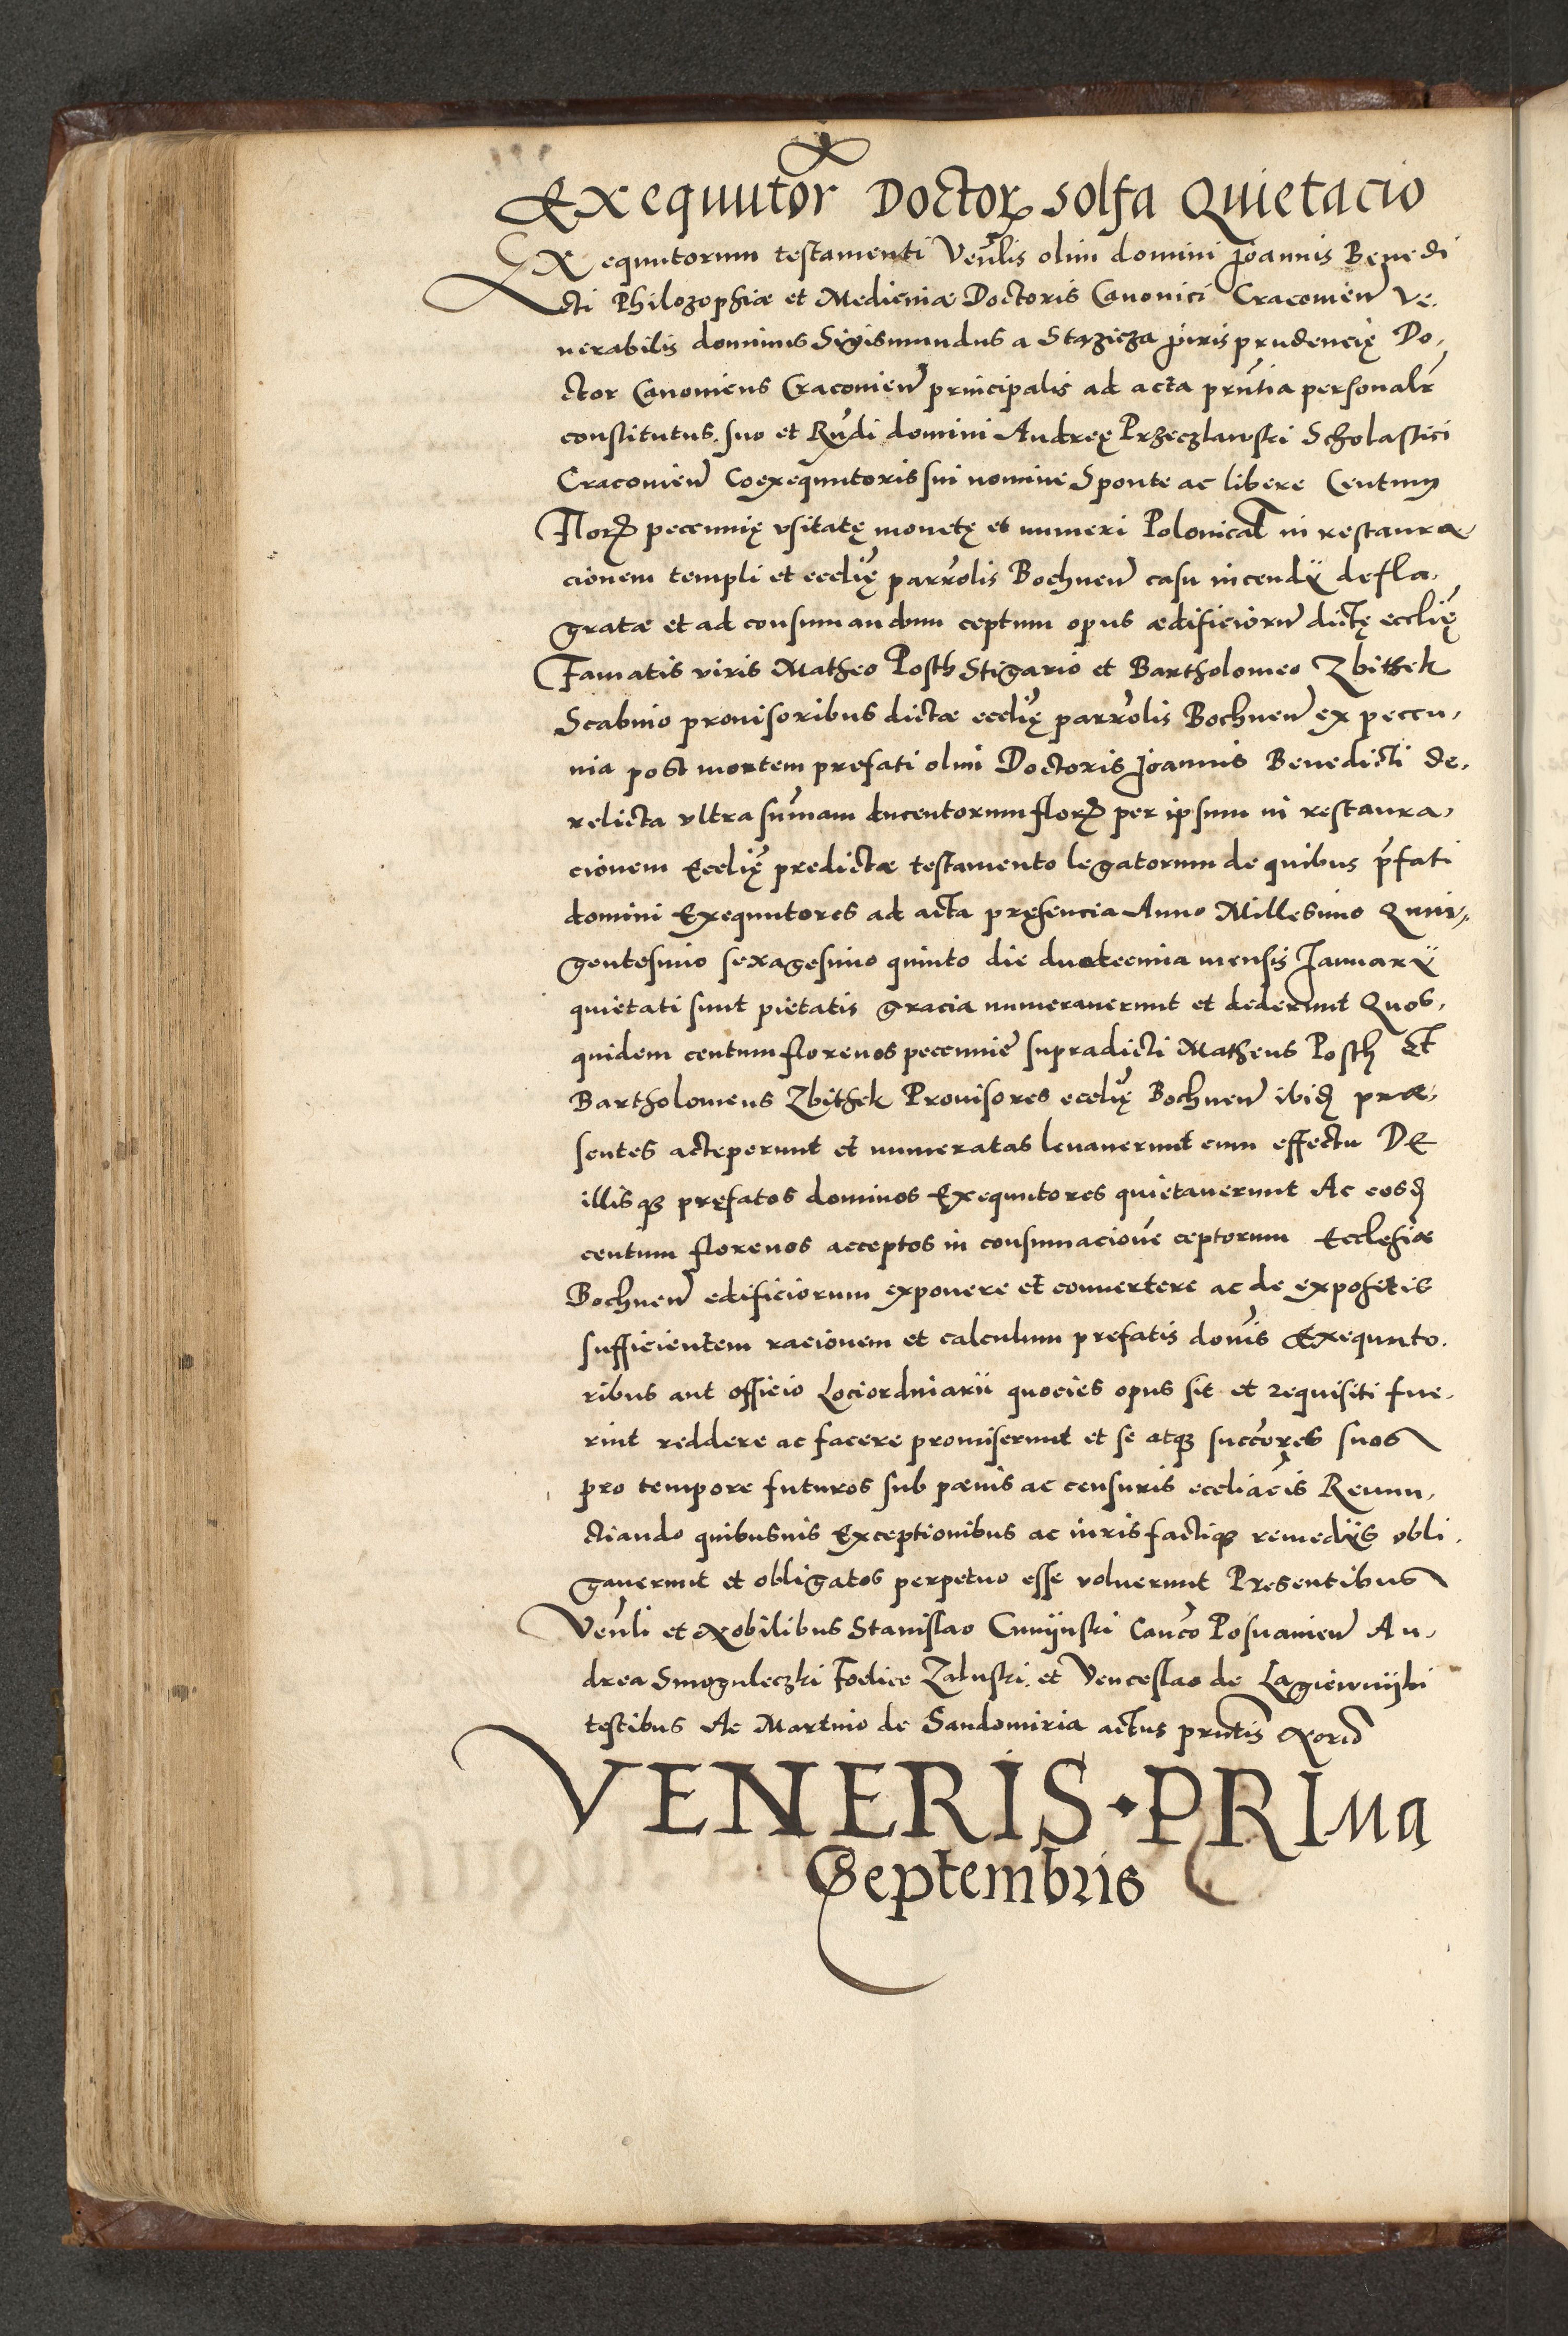 Exequutor Doctor solfa Quietacio
Exequutorum testamenti Venlis olim domini Joannis Benedi
cti Philozophiæ et Medicinæ Doctoris Canonici Cracovien Ve,
nerabilis dominus Sigismundus a Stazicza juris prudencię Do,
ctor Canonicus Cracovien principalis ad acta prntia personalr
constitutus, suo et Rndi domini Andreę Przeczlawski Scholastici
Cracovien Coexequutoris sui nomine Sponte ac libere Centum
Flor pecunnię usitatę monetę et numeri Polonical in restaura
cionem templi et ecclię parrolis Bochnen casu incendii defla,
gratæ et ad consumandum ceptum opus ædificiorum dictę ecclię
Famatis viris Matheo Posth Stigario et Bartholomeo Zbithek
Scabino provisoribus dictæ ecclię parrolis Bochnen ex peccu,
nia post mortem prefati olim Doctoris Joannis Benedicti de,
relicta ultra sumam ducentorum flor per ipsum in restaura,
cionem Ecclię predictæ testamento legatorum de quibus pfati
domini Exequutores ad acta pręsencia Anno Millesimo Quin,
gentesimo sexagesimo quinto die duodecima mensis Januarii
quietati sunt pietatis gracia numeraverunt et dederunt Quos,
quidem centum florenos pecunnie supradicti Matheus Posth Et
Bartholomeus Zbithek Provisores ecclię Bochnen ibid præ,
sentes acteperunt et numeratas levaverunt cum effectu DE
illisque pręfatos dominos Exequutores quietaverunt Ac eosd
centum florenos acceptos in consumacione ceptorum Ecclesiæ
Bochnen edificiorum exponere et convertere ac de expositis
sufficientem racionem et calculum prefatis donis Exequuto,
ribus aut officio Lociordinarii quocies opus sit et requisiti fue,
rint reddere ac facere promiserunt et se atque succores suos
pro tempore futuros sub pœnis ac censuris eccliacis Renun,
ctiando quibusvis Exceptionibus ac iuris factique remediis obli,
gaverunt et obligatos perpetuo esse voluerunt Presentibus
Venli et Nobilibus Stanislao Cmiynski Canco Posnanien An,
drea Smoguleczki Foelice Zaluski, et Venceslao de Lagiewnyki
testibus Ac Martino de Sandomiria actus prntis Norio
VENERIS PRIMa
Septembris